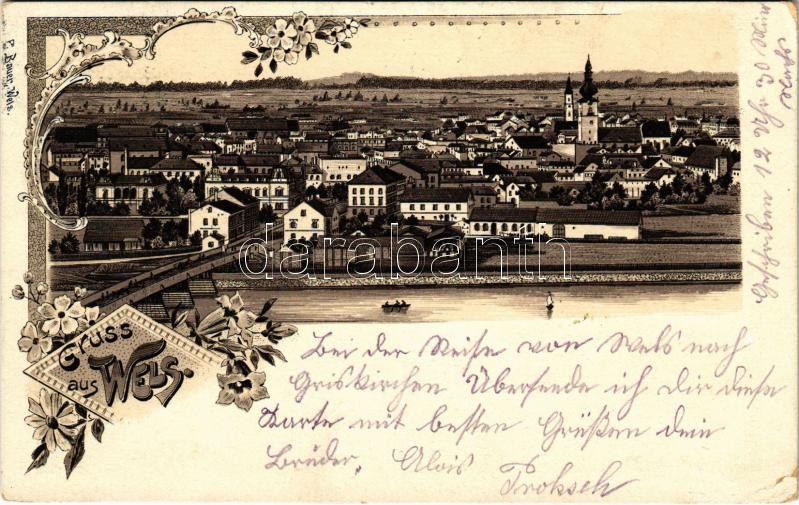 P. Bauer, Wels.
Gruss
aus WELS.
darabanth
Bei der Reise von Wels nach
Griskirchen Übersende ich Dir diese
Karte mit besten Grüßen dein
Bruder, Alois Proksch
Geschrieben 12 Uhr 30 Minu
Nachts